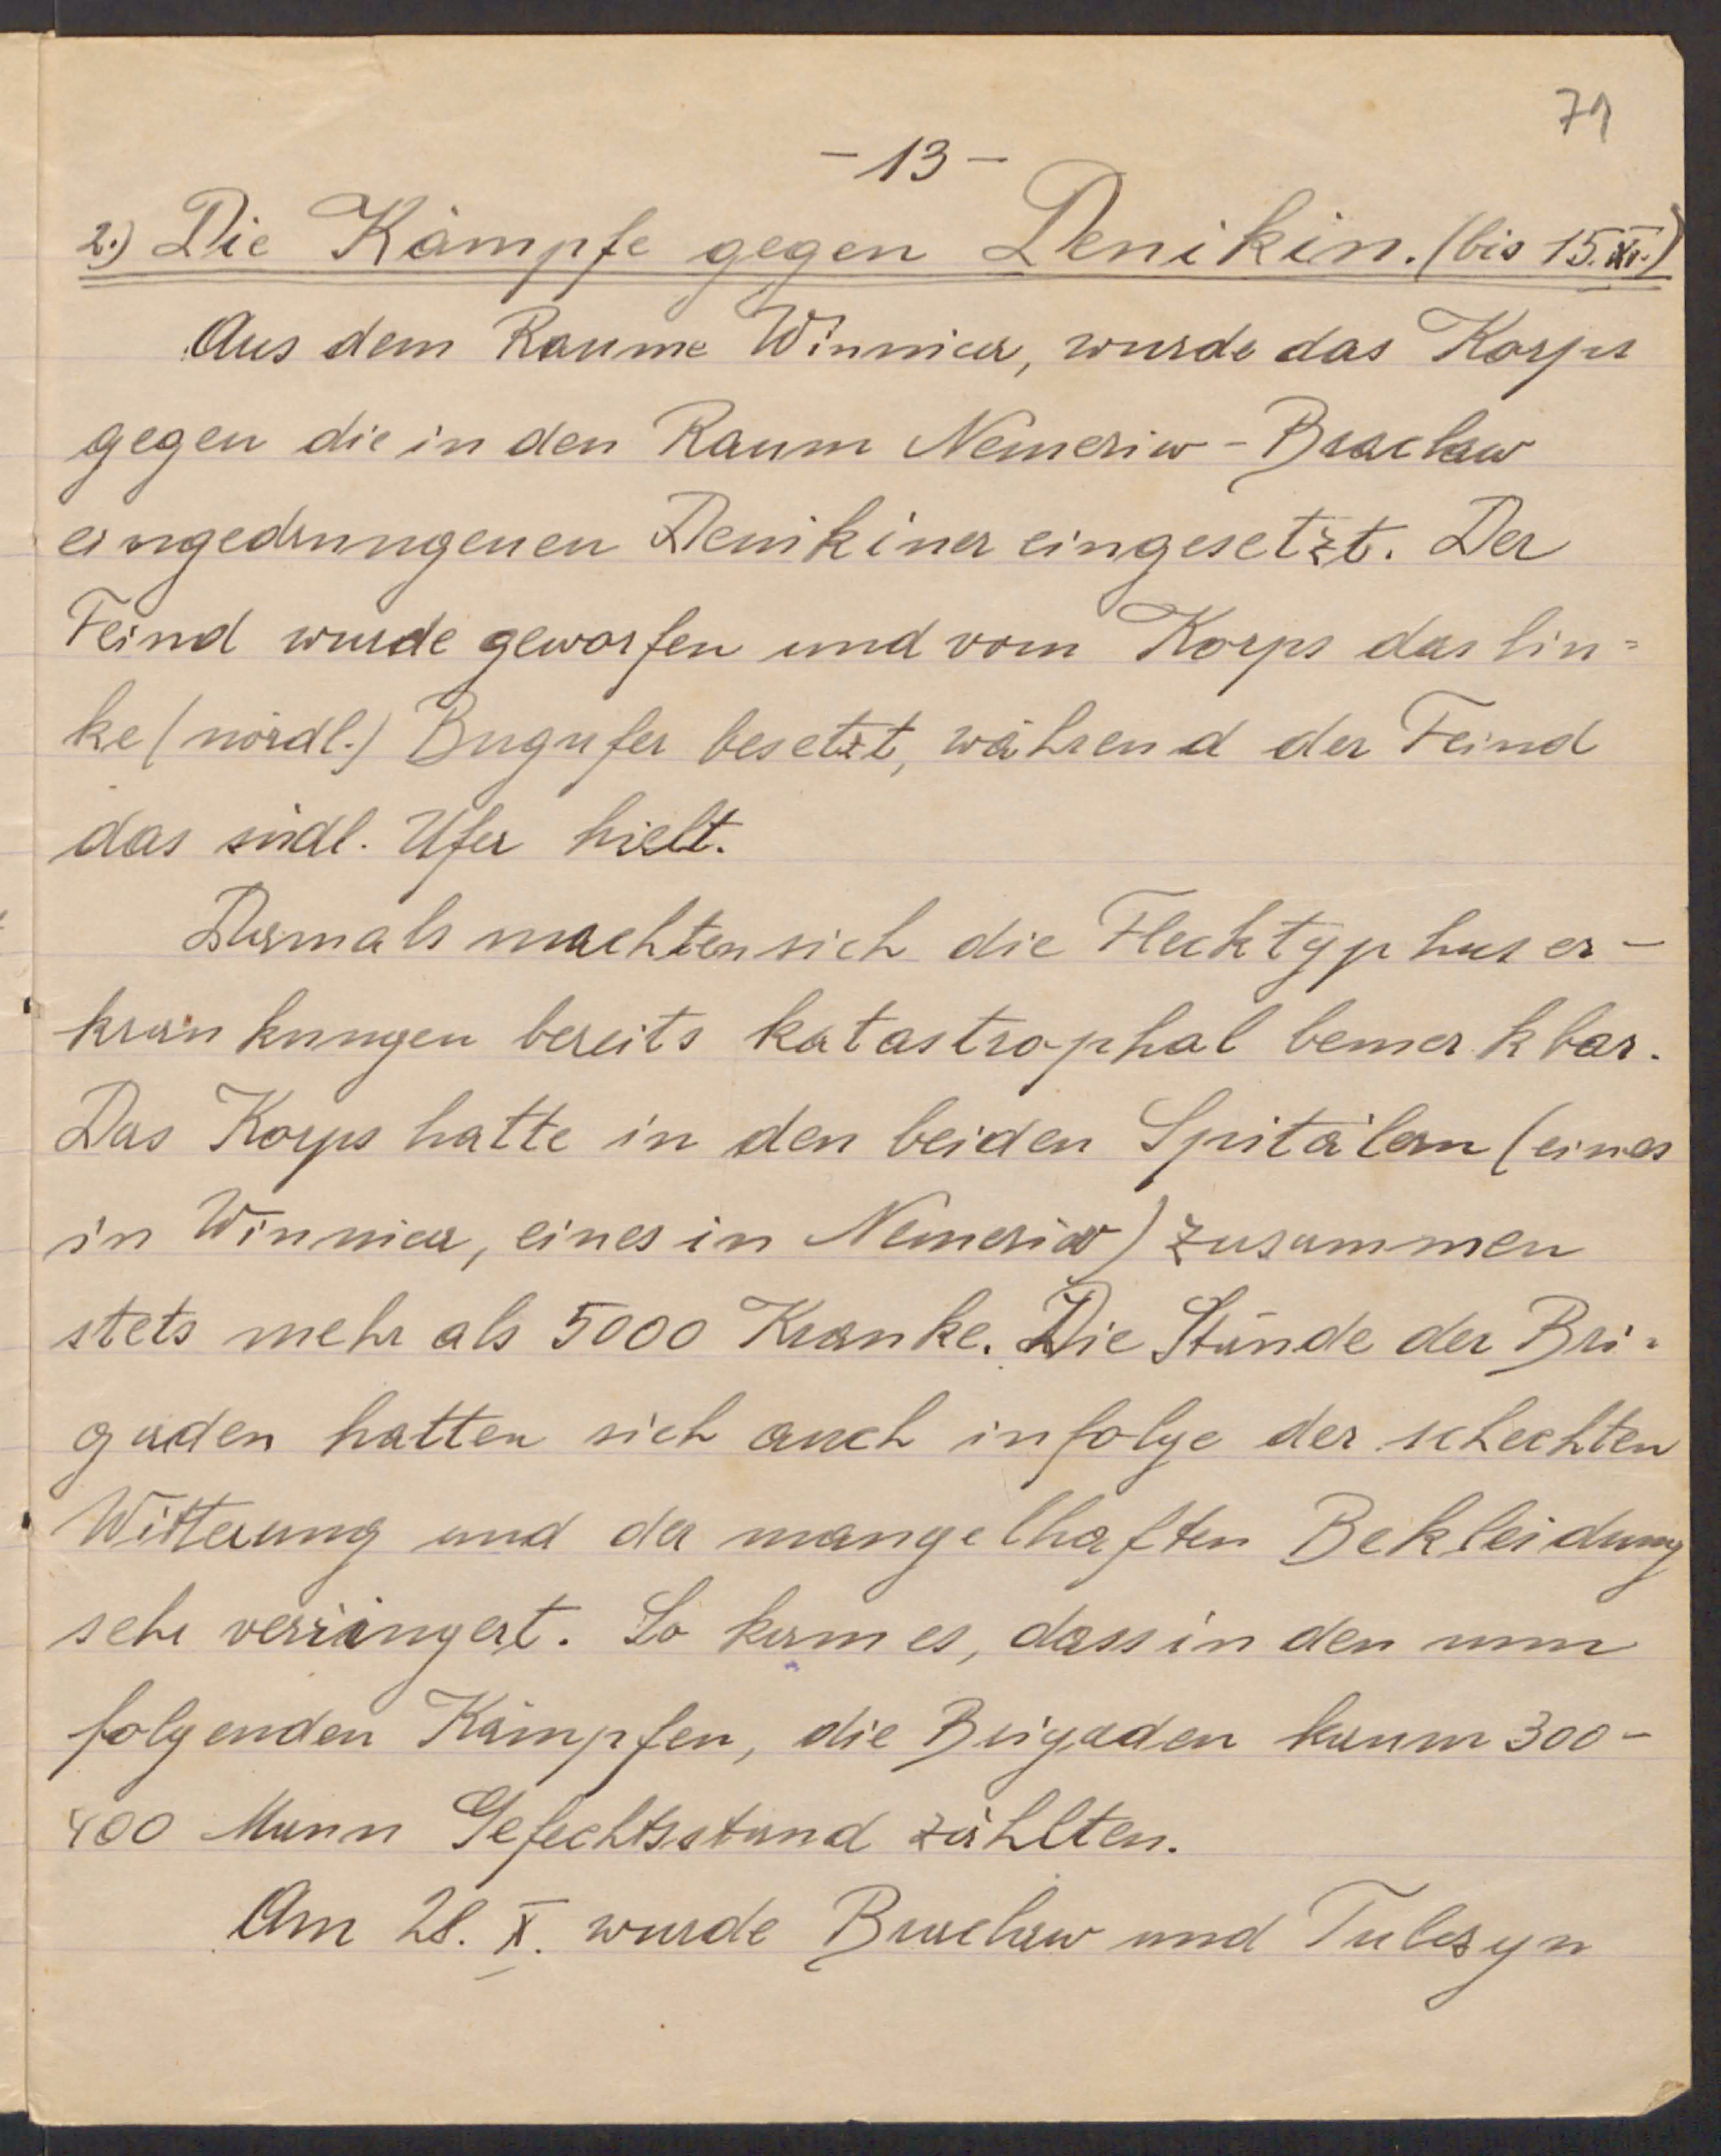 71
- 13 -
2.) Die Kämpfe gegen Denikin. (bis 15. XI.)
Aus dem Raume Winnica, wurde das Korps
gegen die in den Raum Nemeriw - Braclaw
eingedrungenen Denikiner eingesetzt. Der
Feind wurde geworfen und vom Korps das lin=
ke (nördl.) Bugufer besetzt, während der Feind
das südl. Ufer hielt.
Damals machten sich die Flecktyphuser-
krankungen bereits katastrophal bemerkbar.
Das Korps hatte in den beiden Spitälern (eines
in Winnica, eines in Nemeriw) zusammen
stets mehr als 5000 Kranke. Die Stände der Bri=
gaden hatten sich auch infolge der schlechten
Witterung und der mangelhaften Bekleidung
sehr verringert. So kam es, dass in den nun
folgenden Kämpfen, die Brigaden kaum 300-
400 Mann Gefechtsstand zählten.
Am 28. X. wurde Braclaw und Tulczyn